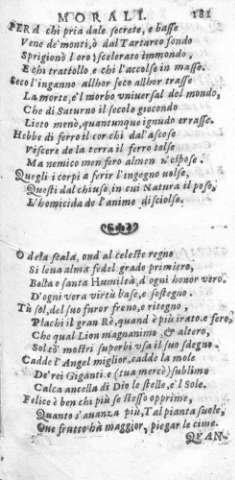 MORALI. 181
PERA chi pria dale secrete, e basse
Vene de'monti, ò dal Tartareo fondo
Sprigionò l'oro; scelerato immondo,
E chi trattollo e chi l'accolse in masse.
Seco l'inganno allhor seco allhor trasse
La morte, e'l morbo universal del mondo,
Che di Saturno il secolo giocondo
Lieto menò, quantunque ignudo errasse.
Hebbe di ferro il cor chi dal'ascose
Viscere de la terra il ferro tolse
Ma nemico men fero almen n'espose.
Quegli i corpi a ferir l'ingegno volse,
Questi dal chiuso, in cui Natura il pose,
L'homicida de l'animo disciolse.
O dela scala, ond'al celeste regno
Si leva alma fedel grado primiero,
Bassa e santa Humiltà, d'ogni honor vero,
D'ogni vera virtù base, e sostegno.
Tù sol, del suo furor freno, e ritegno,
Plachi il gran Rè, quand'è più irato, e fero,
Che qual Lion magnanimo, & altero,
Solo à mostri superbi usa il suo sdegno.
Cadde l'Angel miglior, cadde la mole
De'rei Giganti e (tua mercè) sublime
Calca ancella di Dio le stelle, e'l Sole.
Felice è ben chi più se stesso opprime,
Quanto s'avanza più, Tal pianta suole,
Que frutto hà maggior, piegar le cime.
QUAN-